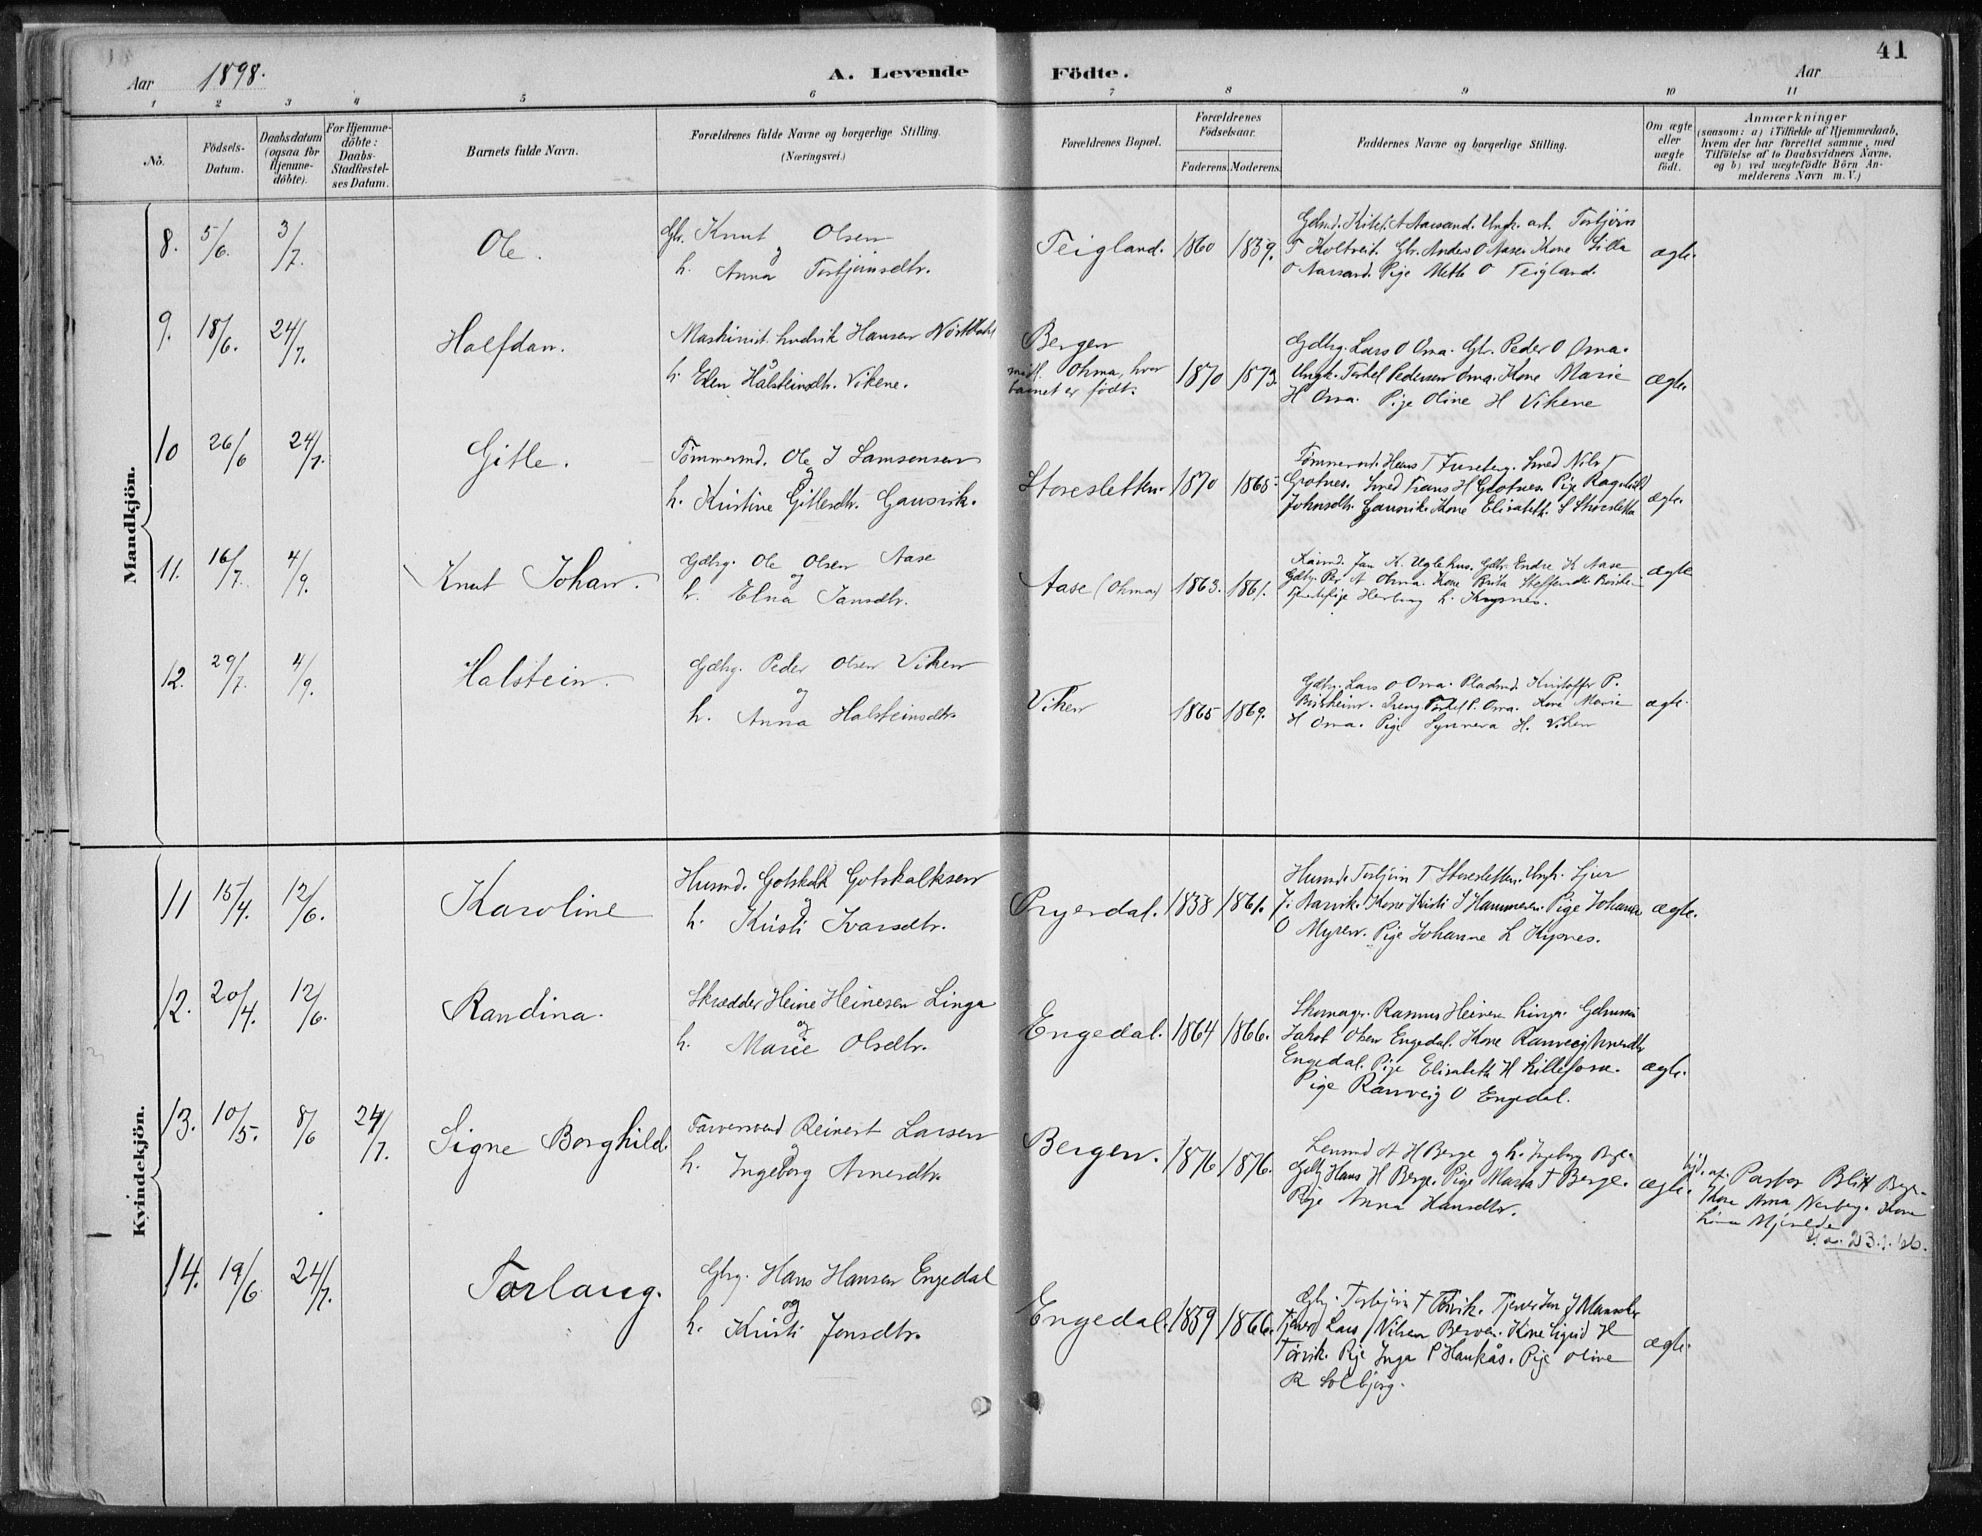 41
Aar 1898.
A. Levende Födte.
Aar
1 2 3 4 5 6 7 8 9 10 11
Nö.
Födsels-Datum.
Daabsdatum (ogsaa for Hjemme-döbte).
For Hjemme-döbte: Daabs-Stadfæstel-ses Datum.
Barnets fulde Navn.
Forældrenes fulde Navne og borgerlige Stilling.
(Næringsvei.)
Forældrenes Bopæl.
Forældrenes Födselsaar.
Faderens. Moderens.
Faddernes Navne og borgerlige Stilling.
Om ægte eller uægte födt.
Anmærkninger
(saasom: a) i Tilfælde af Hjemmedaab,
hvem der har forrettet samme, med
Tilföielse af to Daabsvidners Navne,
og b) ved uægtefödte Börn An-
melderens Navn m. V.)
Mandkjön.
8. 5/6. 3/7. Ole.
Gbr. Knut Olsen
og
h. Anna Torbjørnsdtr.
Teigland. 1860 1839.
T Holtveit. Gbr. Anders O Aase. Kone Silla
O Aarsand. Pige Mette O Teigland.
ægte.
9. 18/6. 24/7. Halfdan.
Maskinist. Hansen
h. Elen Halsteinsdtr. Vikene.
Bergen
midl. Ohma, hvor
barnet er født.
1870 1873.
Gdbrg. Lars O Oma. Gbr. Peder O Oma.
Ungk. Torkel Pedersen Oma. Kone Marie
H Oma. Pige Oline H Vikene
ægte.
10 26/6 24/7. Gitle.
Tømmermd. Ole J Samsonsen
og
h. Kristine Gitlesdtr. Gausvik.
Storesletten. 1870 1865.
Tømmermd. Hans T Fureberg. Smed Nils T
Grotnes. Smed Frans H Grotnes. Pige Ragnhild
Johnsdtr. Gausvik. Kone Elisabeth S Storesletten
ægte.
11. 16/7. 4/9. Knut Johan.
Gdbrg. Ole Olsen Aase
og
h. Elna Jansdtr.
Aase (Ohma) 1863. 1861.
Jan K. Uglehus. Gdbr. Endre K Aase
Gdbr. Per A Ohma. Kone Brita
Herborg L. Kysnes.
ægte
12. 29/7. 4/9. Halstein.
Gdbrg. Peder Olsen Viken
og
h. Anna Halsteinsdtr.
Viken 1865 1869.
Gdbrg. Lars O Oma. Pladsmd. Kristoffer P.
Dreng Torkel P. Oma. Kone Marie
H Oma. Pige Synneva H. Viken
ægte.
Kvindekjön.
11 15/4. 12/6. Karoline
Husmd. Gotskalk Gotskalksen
og
h. Kristi Ivarsdtr.
1838 1861.
Husmd. Torbjørn T Storesletten. Ungk. Sjur
J. Aarvik. Kone Kristi S Hammeren. Pige Johanna
O Myren. Pige Johanne L Kysnes.
ægte.
12. 20/4. 12/6. Randina.
Skrædder Heine Heinesen Linga
og
h. Marie Olsdtr.
Engedal. 1864 1866.
Skomagr. Rasmus Heinesen Linga.
Jakob Olsen Engedal. Kone Ranveig
Engedal. Pige Elisabeth H Lillefosse.
Pige Ranveig O Engedal.
ægte.
13. 10/5. 8/6 24/7. Signe Borghild.
Farversvend Reinert Larsen
og
h. Ingeborg Arnesdtr.
Bergen. 1876 1876.
H Berge og h. Ingeborg Berge
Gdbrg Hans H Berge. Pige Marta T Berge.
Pige Anna Hansdtr.
ægte.
Hjd. af. Pastor Blix Bergen
Kone Anna Kone
14. 19/6 24/7. Torlaug.
Gbrg. Hans Hansen Engedal
og
h. Kristi Jonsdtr.
Engedal. 1859 1866.
Gdbrg. Torbjørn T Tørvik.
Lars Nilsen Berven. Kone Sigrid H
Tørvik. Pige Inga P Haukås. Pige Oline
R Solbjørg.
ægte.